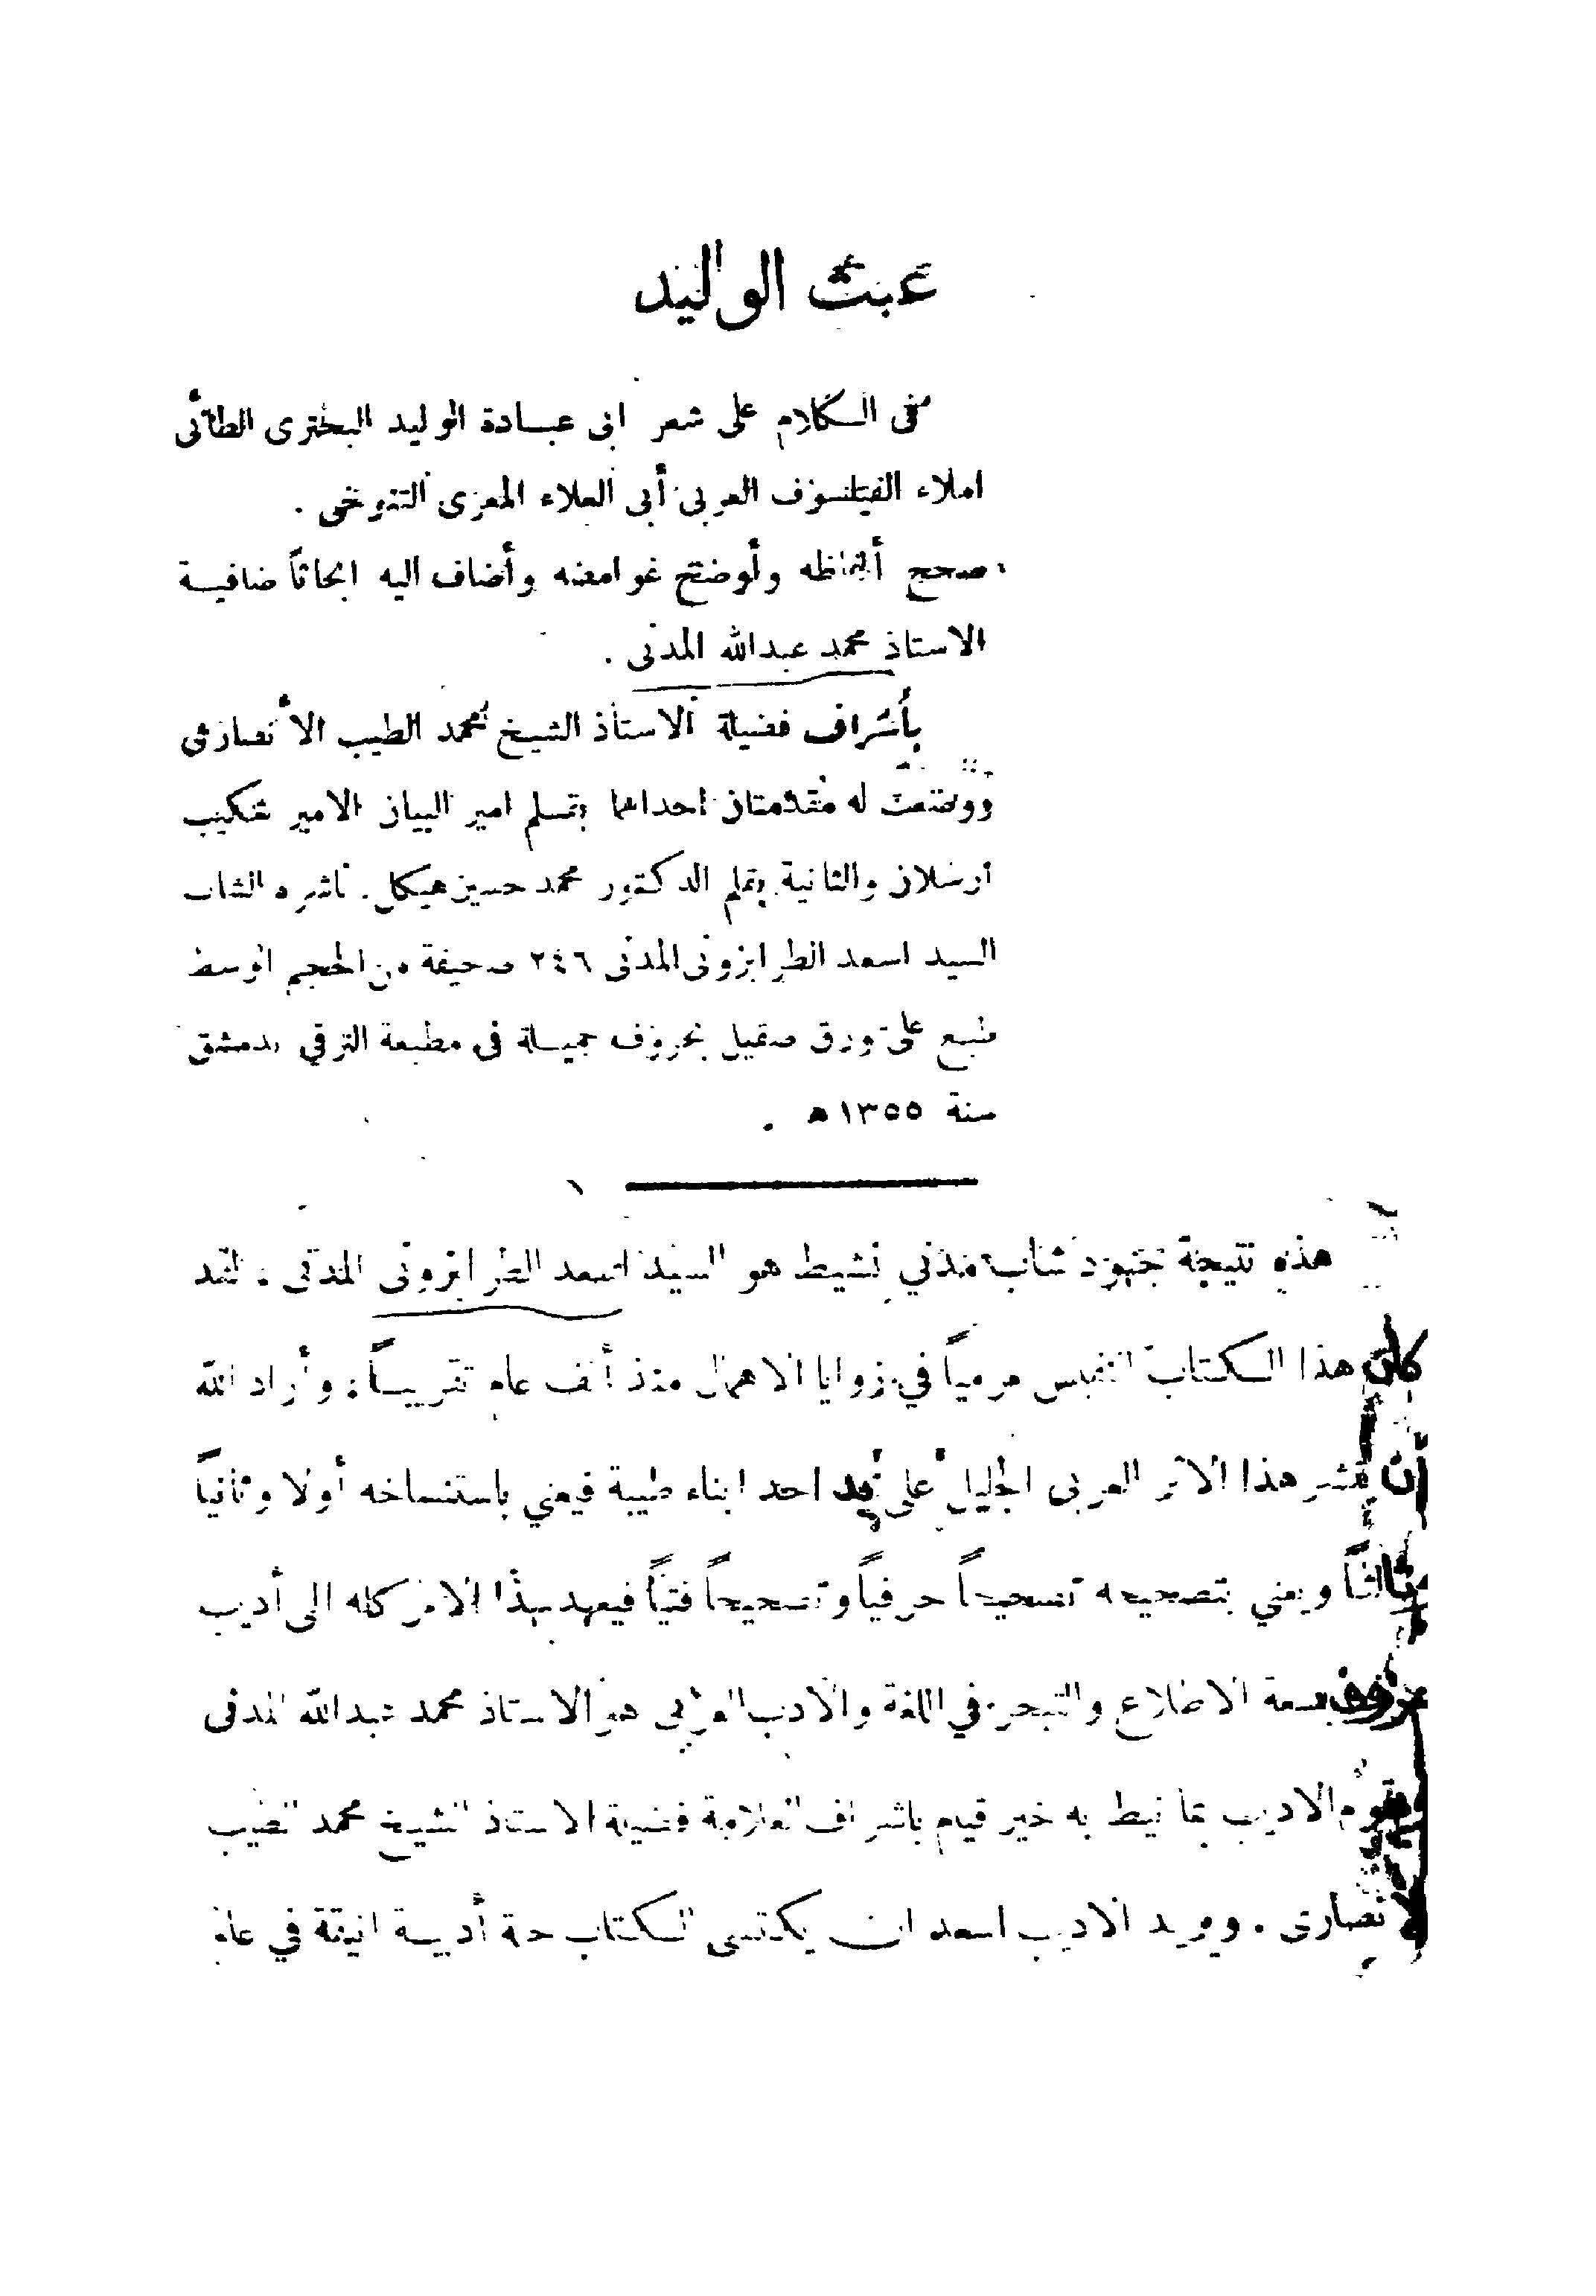 عبث الوليد
في الكلام على شعر ابى عبادة الوليد البحترى الطائى
املاء الفيلسوف العربى أبى العلاء المعرى التنوخى .
صحح ألفاظه وأوضح غوامضه وأضاف اليه ابحاثاً ضافية
الاستاذ محمد عبدالله المدنى .
بأشراف فضيلة الاستاذ الشيخ محمد الطيب الأنصارى
ووضعت له مقدمتان احداهما بقلم امير البيان الامير شكيب
أرسلان والثانية بقلم الدكتور محمد حسين هيكل . ناشره الشاب
السيد اسعد الطرابزونى المدنى ٢٤٦ صحيفة من الحجم الوسط
طبع على ورق صقيل بحروف جميلة فى مطبعة الترقي بدمشق
سنة ١٣٥٥ ه .
هذه نتيجة جهود شاب مدني نشيط هو السيد اسعد الطرابزونى المدنى . لقد
كان هذا الكتاب النفيس مرمياً في زوايا الاهمال منذ ألف عام تقريباً . وأراد الله
أن ينشر هذا الاثر العربى الجليل على يد احد ابناء طيبة فيعني باستنساخه أولا وثانياً
وثالثاً ويعني بتصحيحه تصحيحاً حرفياً وتصحيحاً فنياً فيعهد بهذا الامر كله الى أديب
معروف بسعة الاطلاع والتبحر في اللغة والادب العربى هو الاستاذ محمد عبدالله المدنى
ويقوم الاديب بما نيط به خير قيام باشراف العلامة فضيلة الاستاذ الشيخ محمد الطيب
الانصارى . ويريد الاديب اسعد ان يكتسى الكتاب حلة أدبية انيقة في عالم